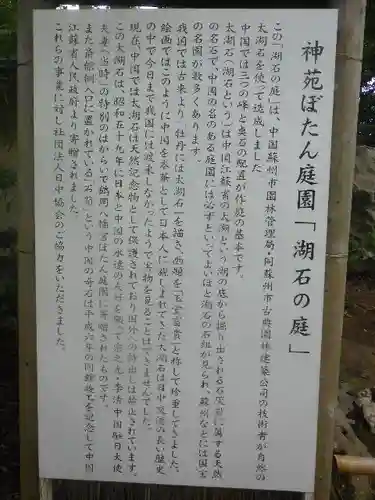 神苑ぼたん庭園「湖石の庭」
この「湖石の庭」は、中国蘇州市園林管理局・同蘇州市古典園林建築公司の技術者が自然の
太湖石を使って造成しました
中国では三つの峰と奥石の配置が作庭の基本です。
太湖石(湖石という)は中国江蘇省の太湖という湖の底から掘り出される石灰岩に属する天然
の名石で、中国の名のある庭園には必ずといってよいほど湖石の石組が見られ、蘇州などには国宝
の名園が数多くあります。
我国では古来より、牡丹には太湖石一を描き、画題を「玉堂富貴」と称して珍重してきました。
絵画ではこのように中国を象徴として日本人に親しまれてきた太湖石は日中交流の長い歴史
の中で今日まで我国には渡来しなかったようで実物を見ることはできませんでした。
現在、中国では太湖石は天然記念物として保護されており国外への持出しは禁止されています。
この太湖石は、昭和五十九年に日本と中国の永遠の友好を願って宋之光・李清中国駐日大使
夫妻(当時)の特別のはからいで鶴岡八幡宮ぼたん庭園に寄贈されたものです。
また斎館側入口に置かれている「石筍」という中国の奇石は平成六年の回遊路竣工を記念して中国
江蘇省人民政府より寄贈されました。
これらの事業に対し社団法人日中協会のご協力をいただきました。